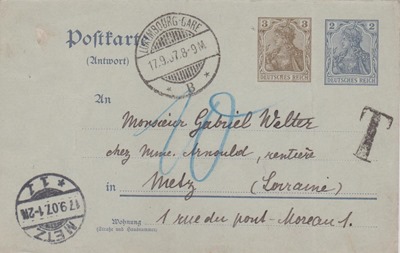 Postkarte
(Antwort)
LUXEMBOURG-GARE
17.9.07.8-9M
B
3 3
DEUTSCHES REICH
2 2
DEUTSCHES REICH
An
Monsieur Gabriel Welter
chez Mme. Arnould, rentière
in Metz (Lorraine)
Wohnung
(Straße und Hausnummer)
1 rue du pont-Moreau 1.
10
T
METZ
17.9.07.1-2N
* 1 1